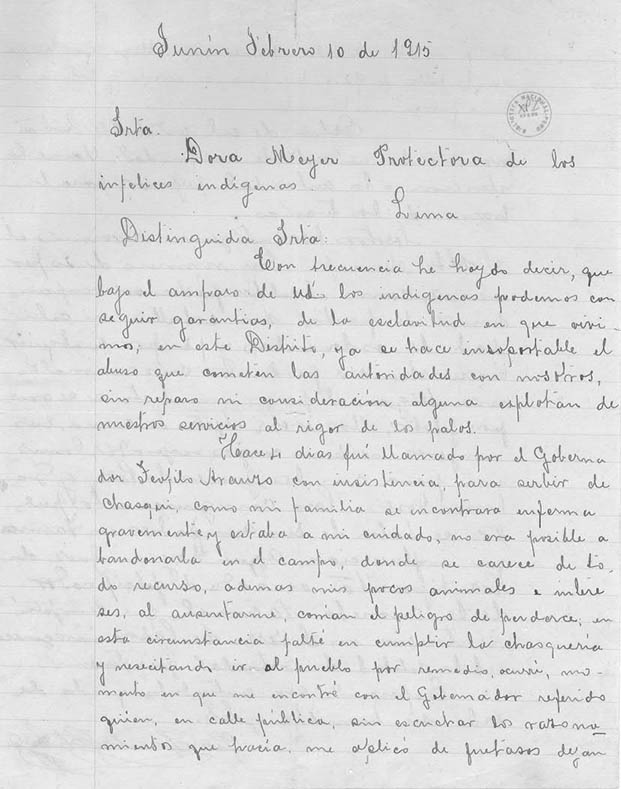 Junín Febrero 10 de 1915
BIBLIOTECA NACIONAL
Srta.
Dora Meyer Protectora de los
infelices indígenas.
Lima
Distinguida Srta:
Con frecuencia he hoydo decir, que
bajo el amparo de Ud. los indigenas podemos con
seguir garantias, de la esclavitud en que vivi-
mos, en este Distrito, ya se hace insoportable el
abuso que cometen las autoridades con nosotros,
sin reparo ni consideracion alguna esplotan de
nuestros servicios al rigor de los palos.
Hace 4 dias fuí llamado por el Goberna
dor Teofilo Arauzo con insistencia, para serbir de
chasqui, como mi familia se incontrara enferma
gravemente y estaba a mi cuidado, no era posible a
bandonarla en el campo, donde se carece de to,
do recurso, ademas mis pocos animales e intere
ses, al ausentarme, corrian el peligro de perderce, en
esta circunstancia falté en cumplir la chasqueria
y nesecitando ir al pueblo por remedio, ocurrí, mo-
mento en que me encontré con el Gobernador referido
quien, en calle pública, sin escuchar los razona
mientos que hacía, me aplicó de fuetasos dejan